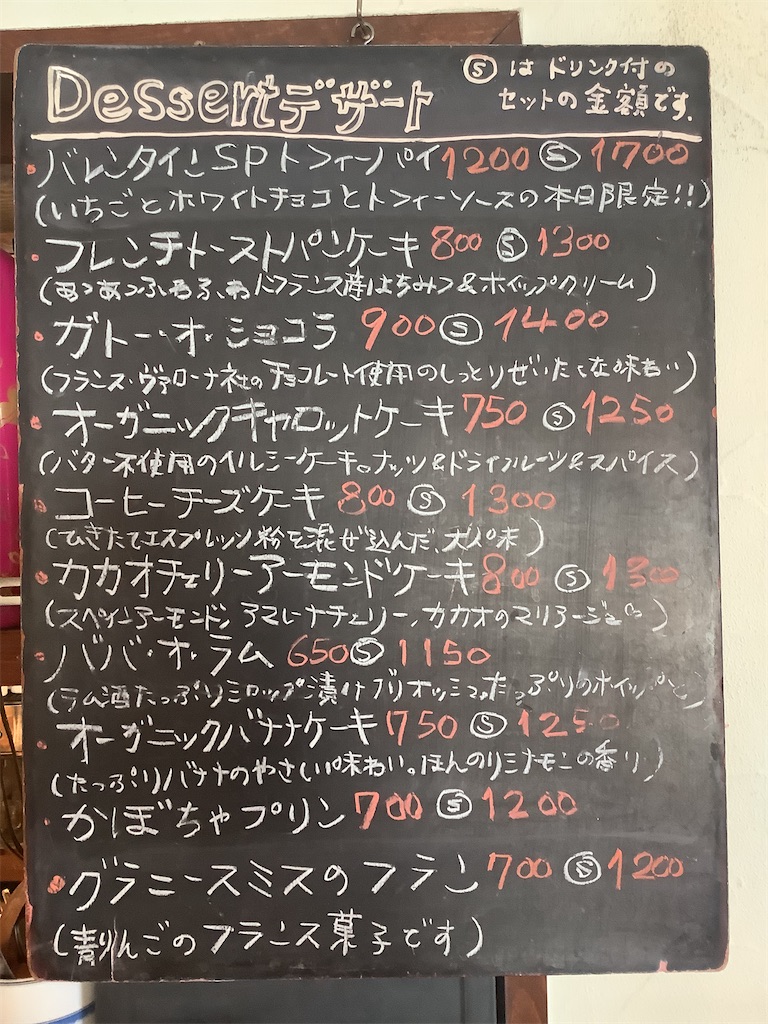 Dessertデザート
Ⓢ は ドリンク付の
セットの金額です.
バレンタインSPトフィーパイ 1200 Ⓢ 1700
(いちごとホワイトチョコとトフィーソースの本日限定!!)
フレンチトーストパンケーキ 800 Ⓢ 1300
(あつあつふわふわ フランス産はちみつ&ホイップクリーム)
ガトー・オ・ショコラ 900 Ⓢ 1400
(フランス・ヴァローナ社のチョコレート使用のしっとりぜいたくな味わい)
オーガニックキャロットケーキ 750 Ⓢ 1250
(バター不使用のヘルシーケーキ。ナッツ&ドライフルーツ&スパイス)
コーヒーチーズケーキ 800 Ⓢ 1300
(ひきたてエスプレッソ粉を混ぜ込んだ、大人味)
カカオチェリーアーモンドケーキ 800 Ⓢ 1300
(スペインアーモンド、アマレーナチェリー、カカオのマリアージュ)
ババ・オ・ラム 650 Ⓢ 1150
(ラム酒たっぷりシロップ漬けブリオッシュ。たっぷりのホイップ)
オーガニックバナナケーキ 750 Ⓢ 1250
(たっぷりバナナのやさしい味わい。ほんのりシナモンの香り)
かぼちゃプリン 700 Ⓢ 1200
グラニースミスのフラン 700 Ⓢ 1200
(青りんごのフランス菓子です)